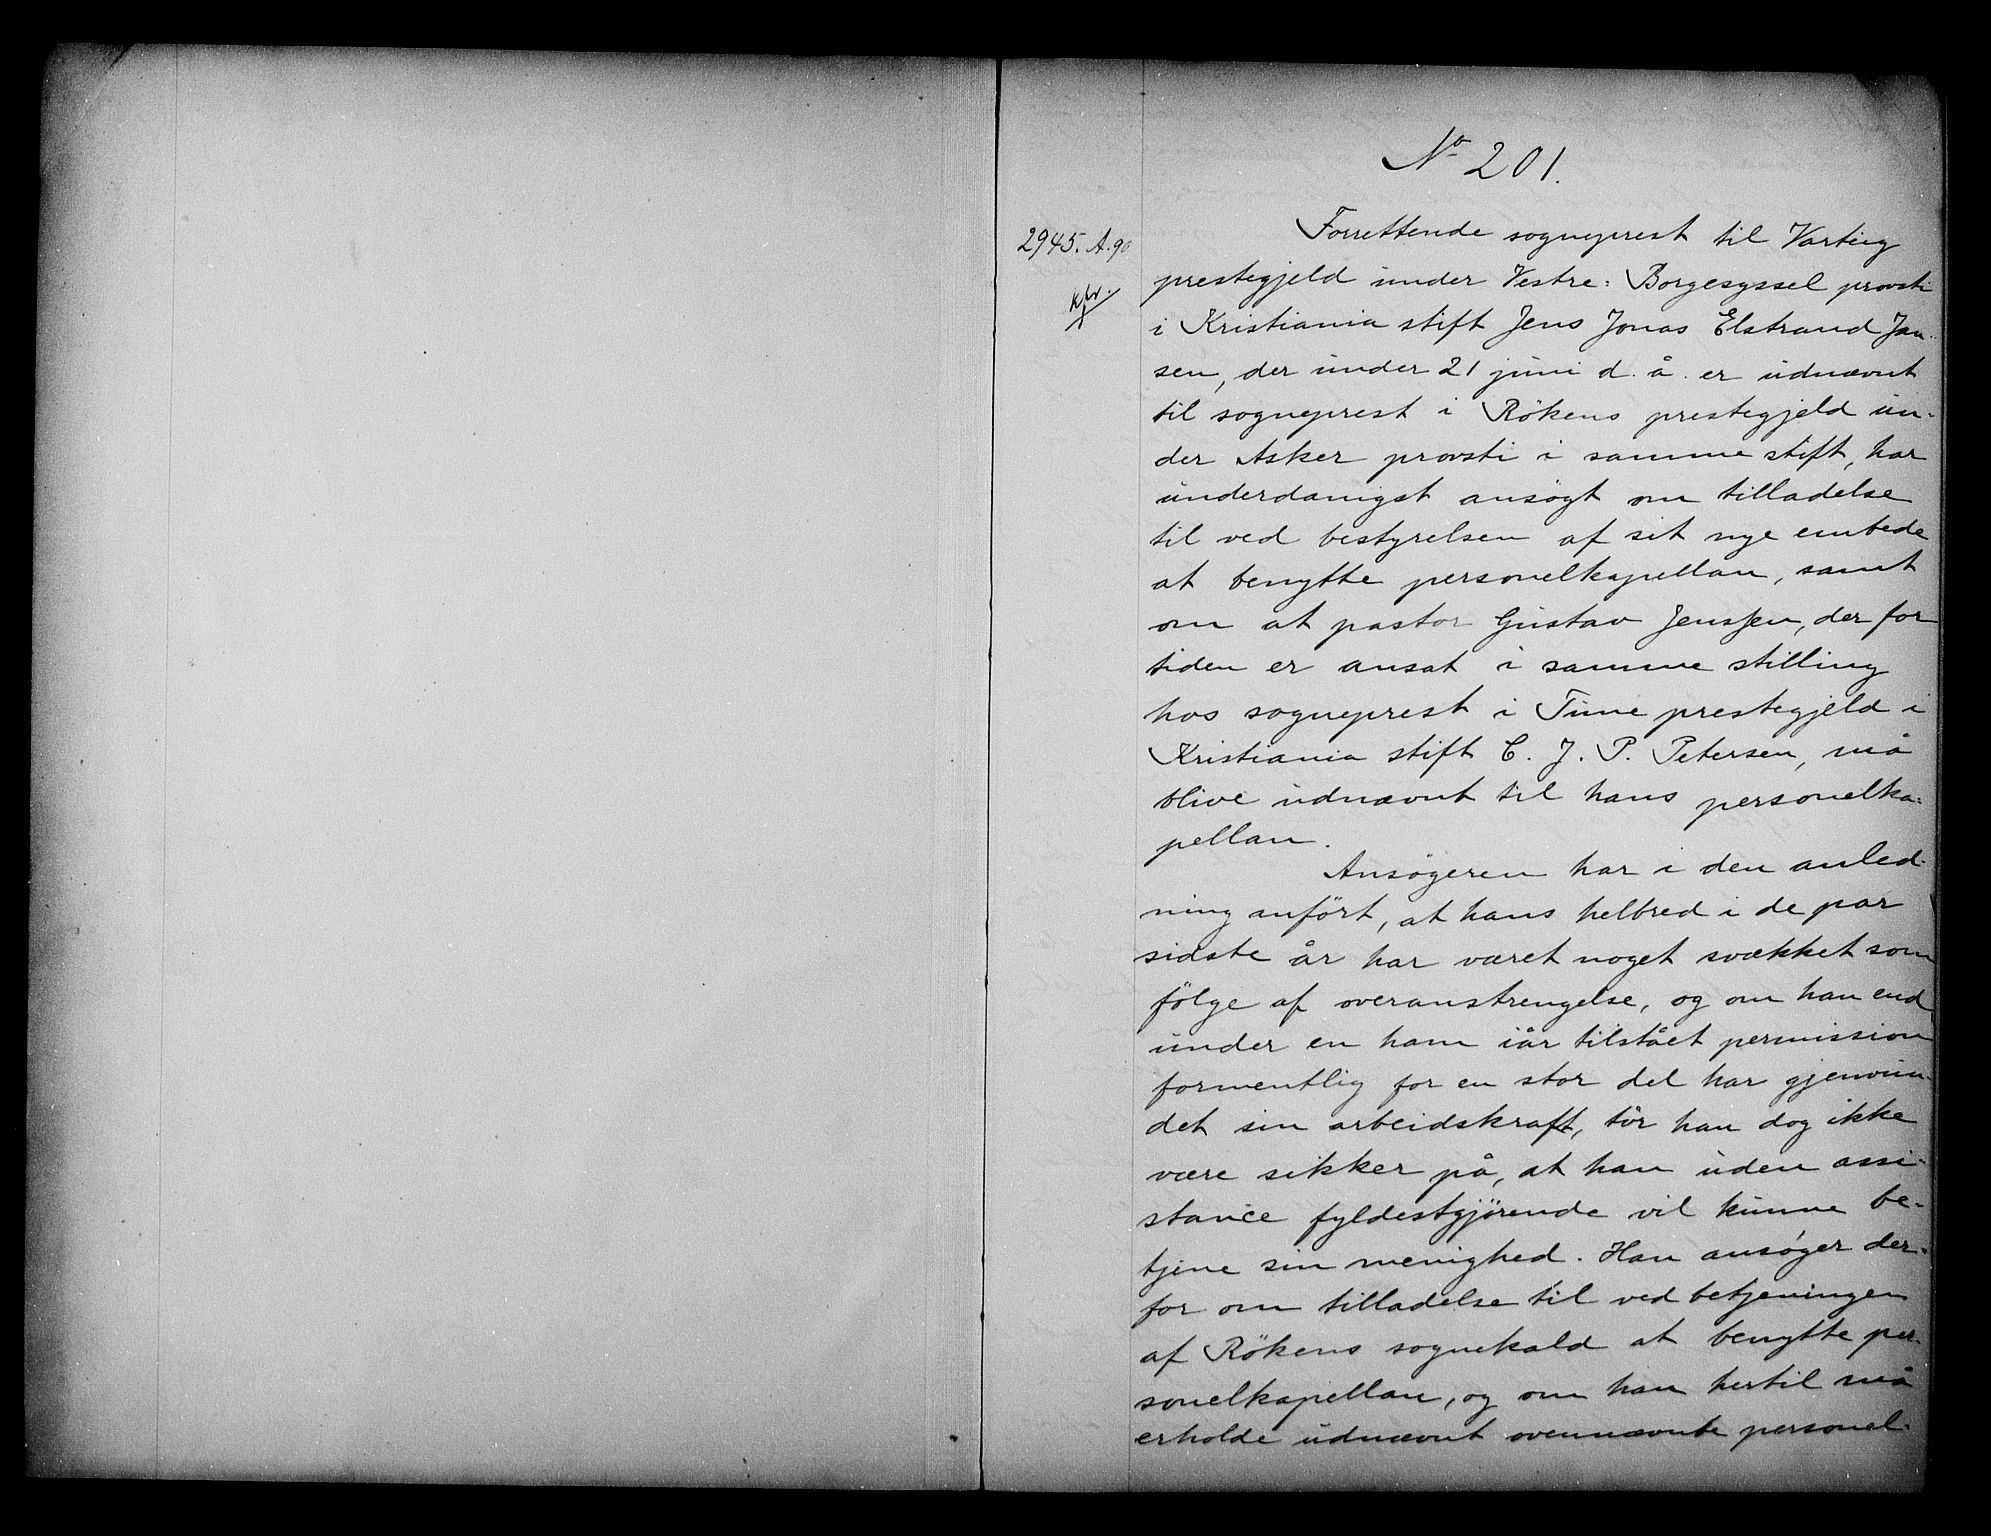 No 201.
2945. A. 90
Forrettende sogneprest til Varteig
prestegjeld under Vestre: Borgesyssel provsti
i Kristiania stift Jens Jonas Elstrand Jan-
sen, der under 21 juni d. å. er udnævnt
til sogneprest i Rökens prestegjeld un-
der Asker provsti i samme stift, har
underdanigst ansøgt om tilladelse
til ved bestyrelsen af sit nye embede
at benytte personelkapellan, samt
om at pastor Gustav Jenssen, der for
tiden er ansat i samme stilling
hos sogneprest i Tune prestegjeld i
Kristiania stift C. J. P. Petersen, må
blive udnævnt til hans personelka-
pellan.
Ansøgeren har i den anled-
ning anført, at hans helbred i de par
sidste år har været noget svækket som
følge af overanstrengelse, og om han end
under en ham iår tilstået permission
formentlig for en stor del har gjenvun-
det sin arbeidskraft, tør han dog ikke
være sikker på, at han uden assi-
stance fyldestgjörende vil kunne be-
tjene sin menighed. Han ansøger der-
for om tilladelse til ved betjeningen
af Rökens sognekald at benytte per-
sonelkapellan, og om han hertil må
erholde udnævnt ovennævnte personel-